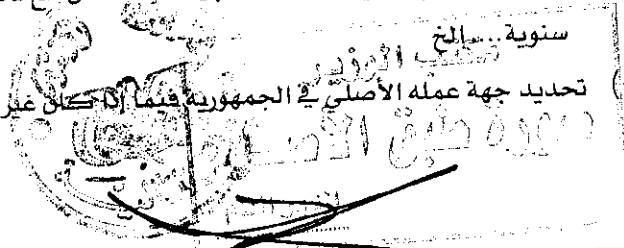 سنوية....الخ
مكتب الوزير
تحديد جهة عمله الأصلي في الجمهورية فيما إذا كان غير
صورة طبق الأصل